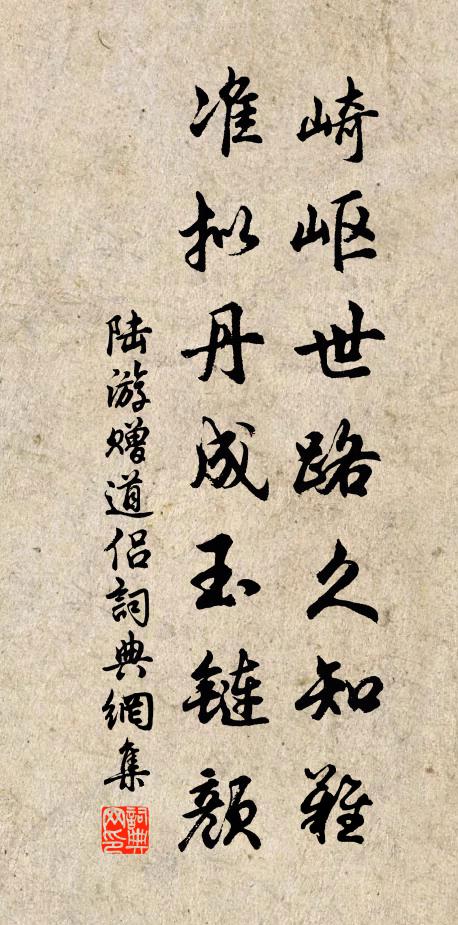 崎岖世路久知难
准拟丹成玉鏈颜
陆游赠道侣詞典網集
詞典网印